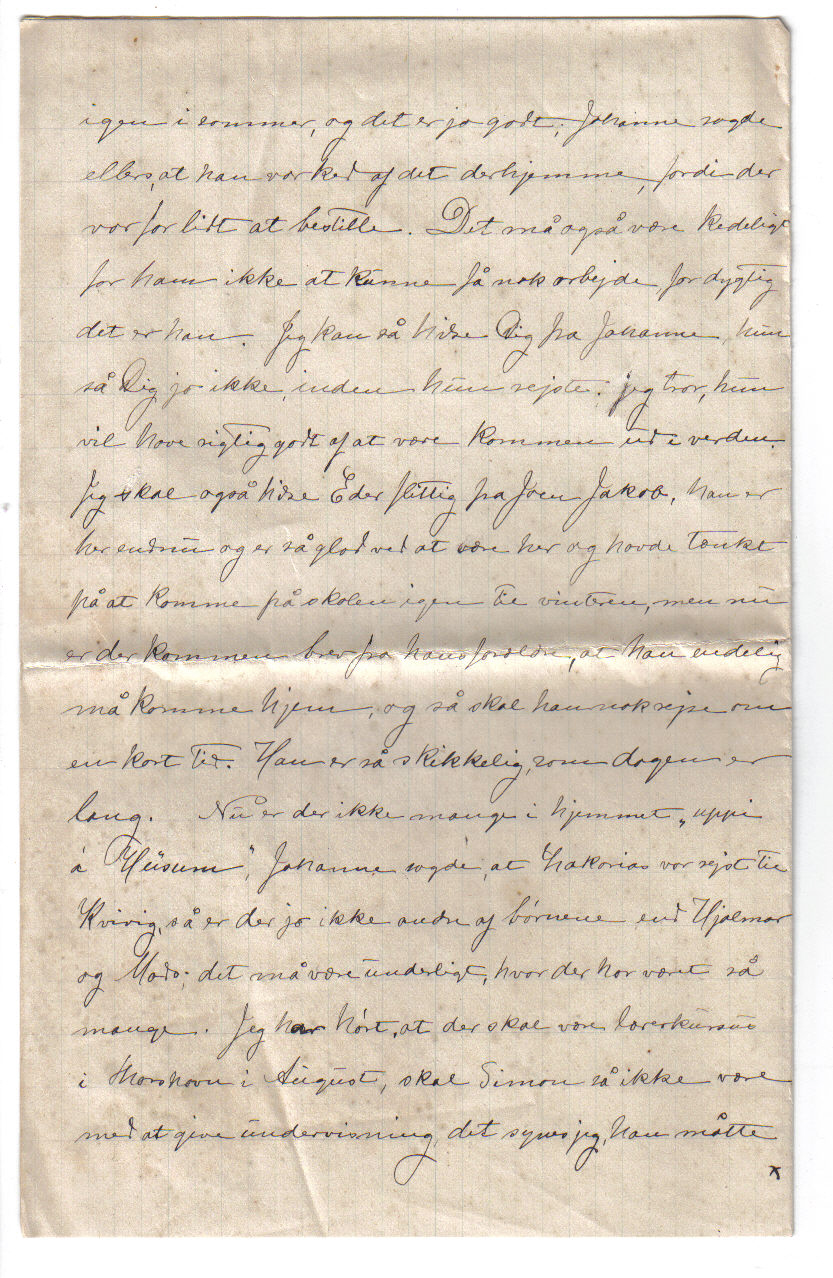 igen i sommer, og det er jo godt; Johanne sagde
ellers, at han var ked af det derhjemme, fordi der
var for lidt at bestille. Det må også være kedeligt
for ham ikke at kunne få nok arbejde, for dygtig
det er han. Jeg kan så hilse Dig fra Johanne, hun
så Dig jo ikke, inden hun rejste; jeg tror, hun
vil have rigtig godt af at være kommen ud i verden.
Jeg skal også hilse Eder flittig fra Joen Jakob, han er
her endnu og er så glad ved at være her og havde tænkt
på at komme på skolen igen til vinteren, men nu
er der kommen brev fra hans forældre, at han endelig
må komme hjem, og så skal han nok rejse om
en kort tid. Han er så skikkelig, som dagen er
lang. Nu er der ikke mange i hjemmet „uppi
á Húsum", Johanne sagde, at Zakarias var rejst til
Kvivig, så er der jo ikke andre af børnene end Hjalmar
og Mads; det må være underligt, hvor der har været så
mange. Jeg har hørt, at der skal være lærerkursus
i Thorshavn i August, skal Simon så ikke være
med at give undervisning, det synes jeg, han måtte
x